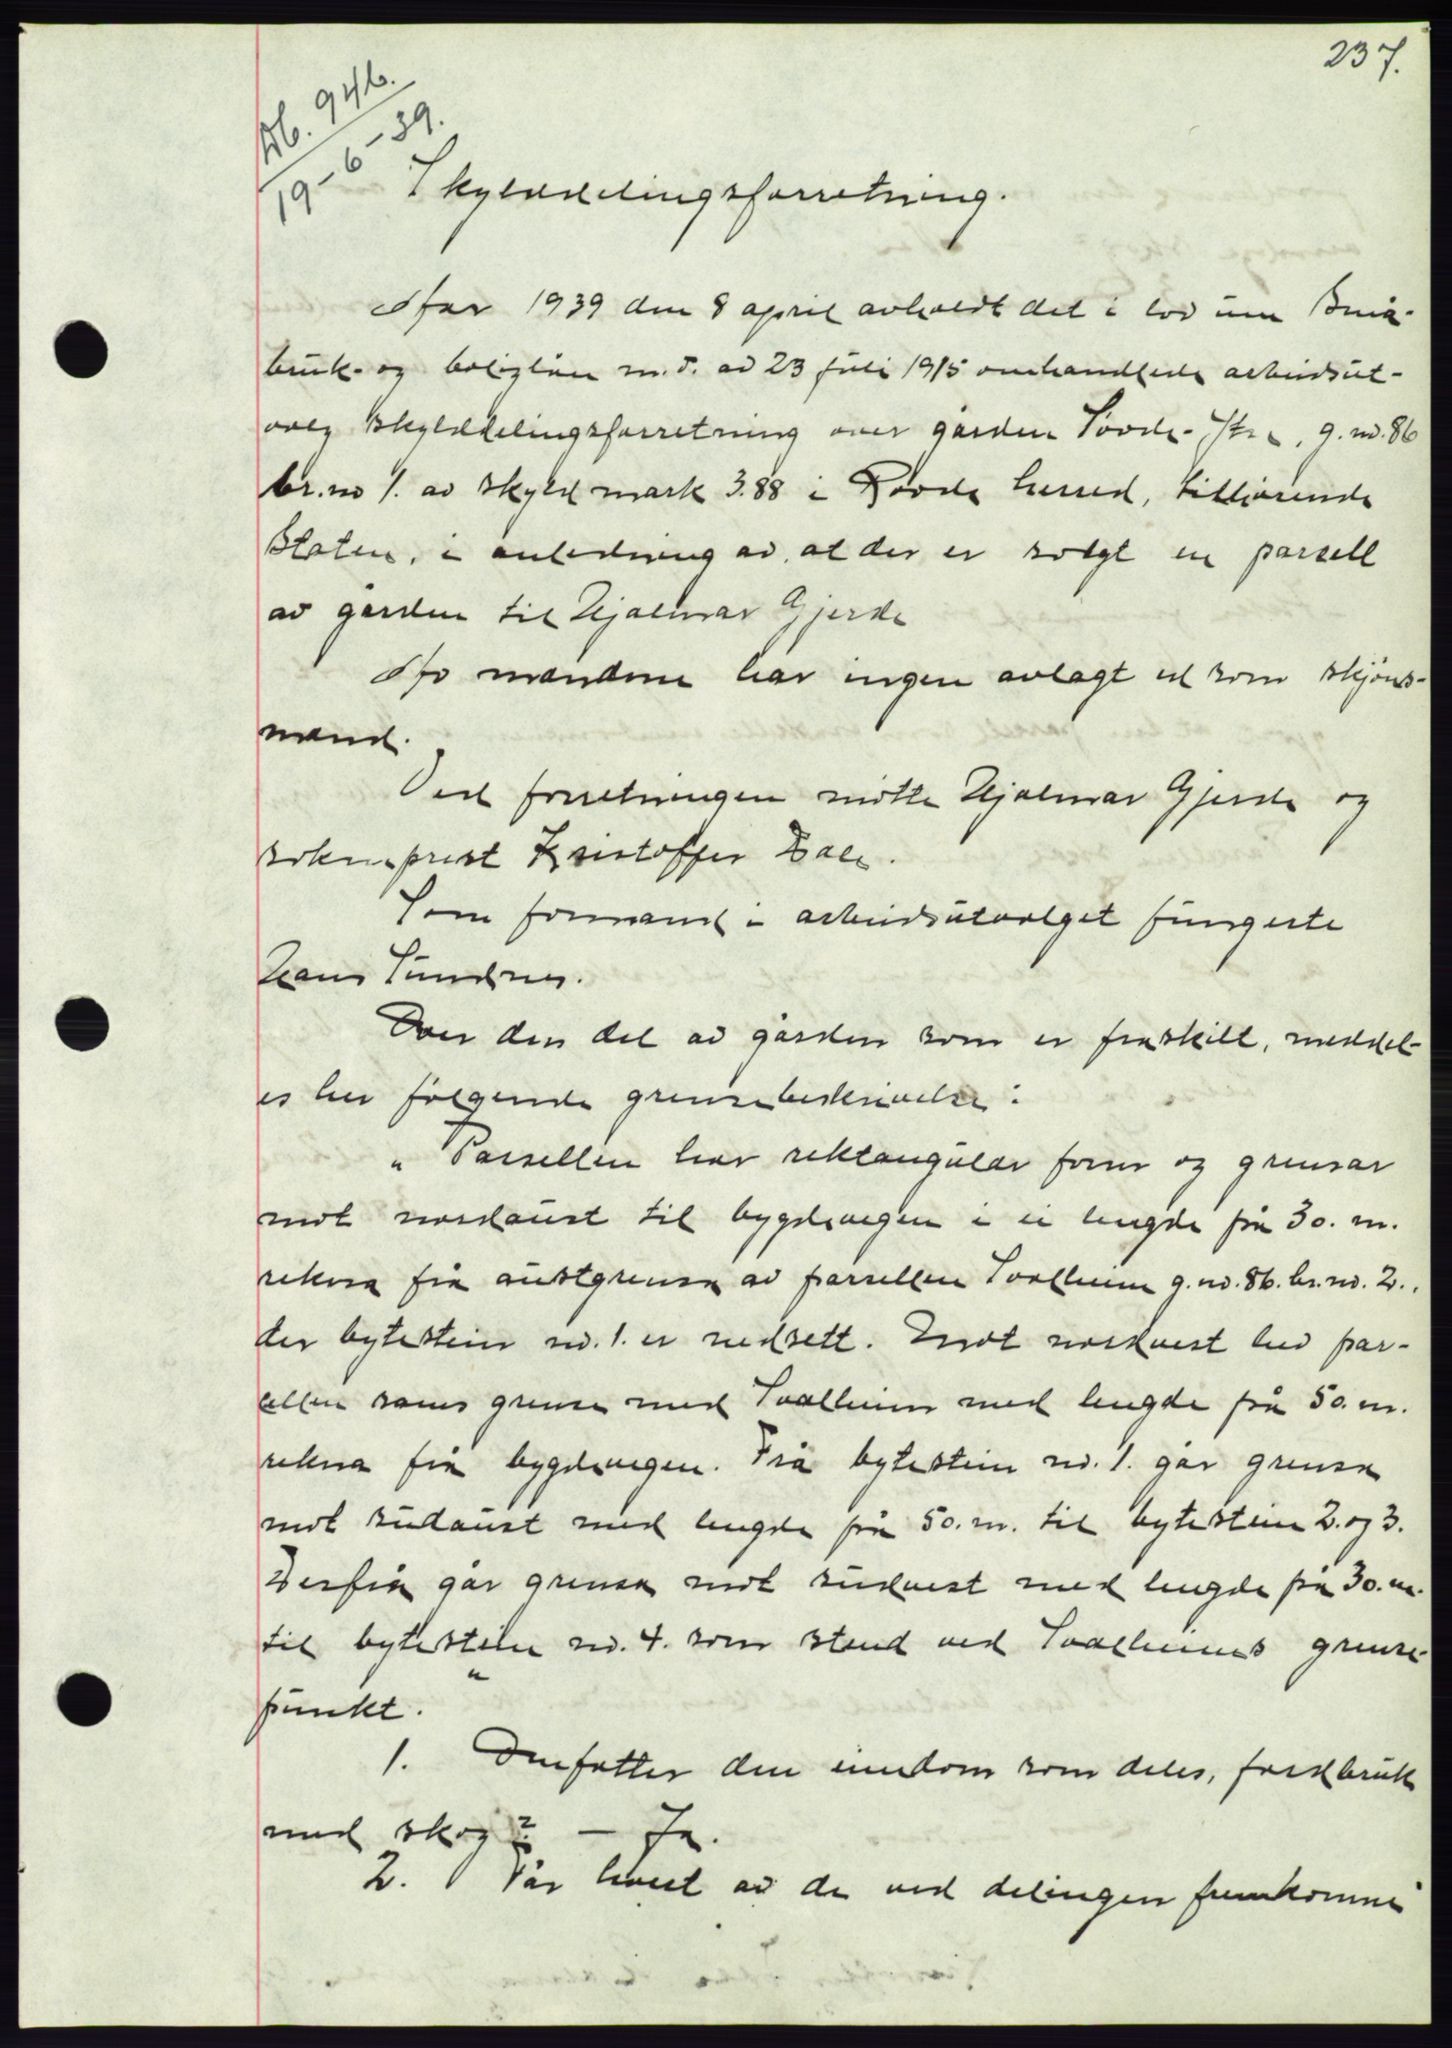 237.
Db. 946.
19-6-39.
Skylddelingsforretning.
År 1939 den 8 april avholdt det i lov um Små-
bruk- og boliglån m.v. av 23 juli 1915 omhandlede arbeidsut-
valg skylddelingsforretning over gården Søvde-Ytre, g.nr. 86
br.no 1. av skyld mark 3.88 i Rovde herred, tilhørende
Staten, i anledning av, at der er solgt en parsell
av gården til Hjalmar Gjerde
Av mændene har ingen avlagt ed som skjøns-
mænd.
Ved forretningen møtte Hjalmar Gjerde og
sokneprest Kristoffer Dale.
Som formand i arbeidsutvalget fungerte
Hans Sundnes.
Over den del av gården som er fraskilt, meddel-
es her følgende grensebeskrivelse:
" Parsellen har rektangulær form og grensar
mot nordaust til bygdevegen i ei lengde på 30. m.
rekna frå austgrensa av parsellen Solheim g.nr. 86. br.nr. 2.,
der bytestein nr. 1. er nedsett. Imot nordvest hev par-
sellen sams grense med Solheim med lengde på 50. m.
rekna frå bygdevegen. Frå bytestein nr. 1. går grensa
mot sudaust med lengde på 50. m. til bytestein 2. og 3.
Derfrå går grensa mot sudvest med lengde på 30. m.
til bytestein nr. 4. som stend ved Solheims grense-
punkt. "
1. Omfatter den eiendom som deles, jordbruk
med skog? — Ja.
2. Får hvert av de ved delingen fremkomne